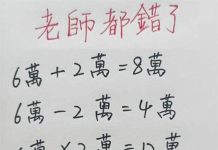 老師都錯了
6萬+2萬=8萬
6萬-2萬=4萬
6萬×2萬=12萬